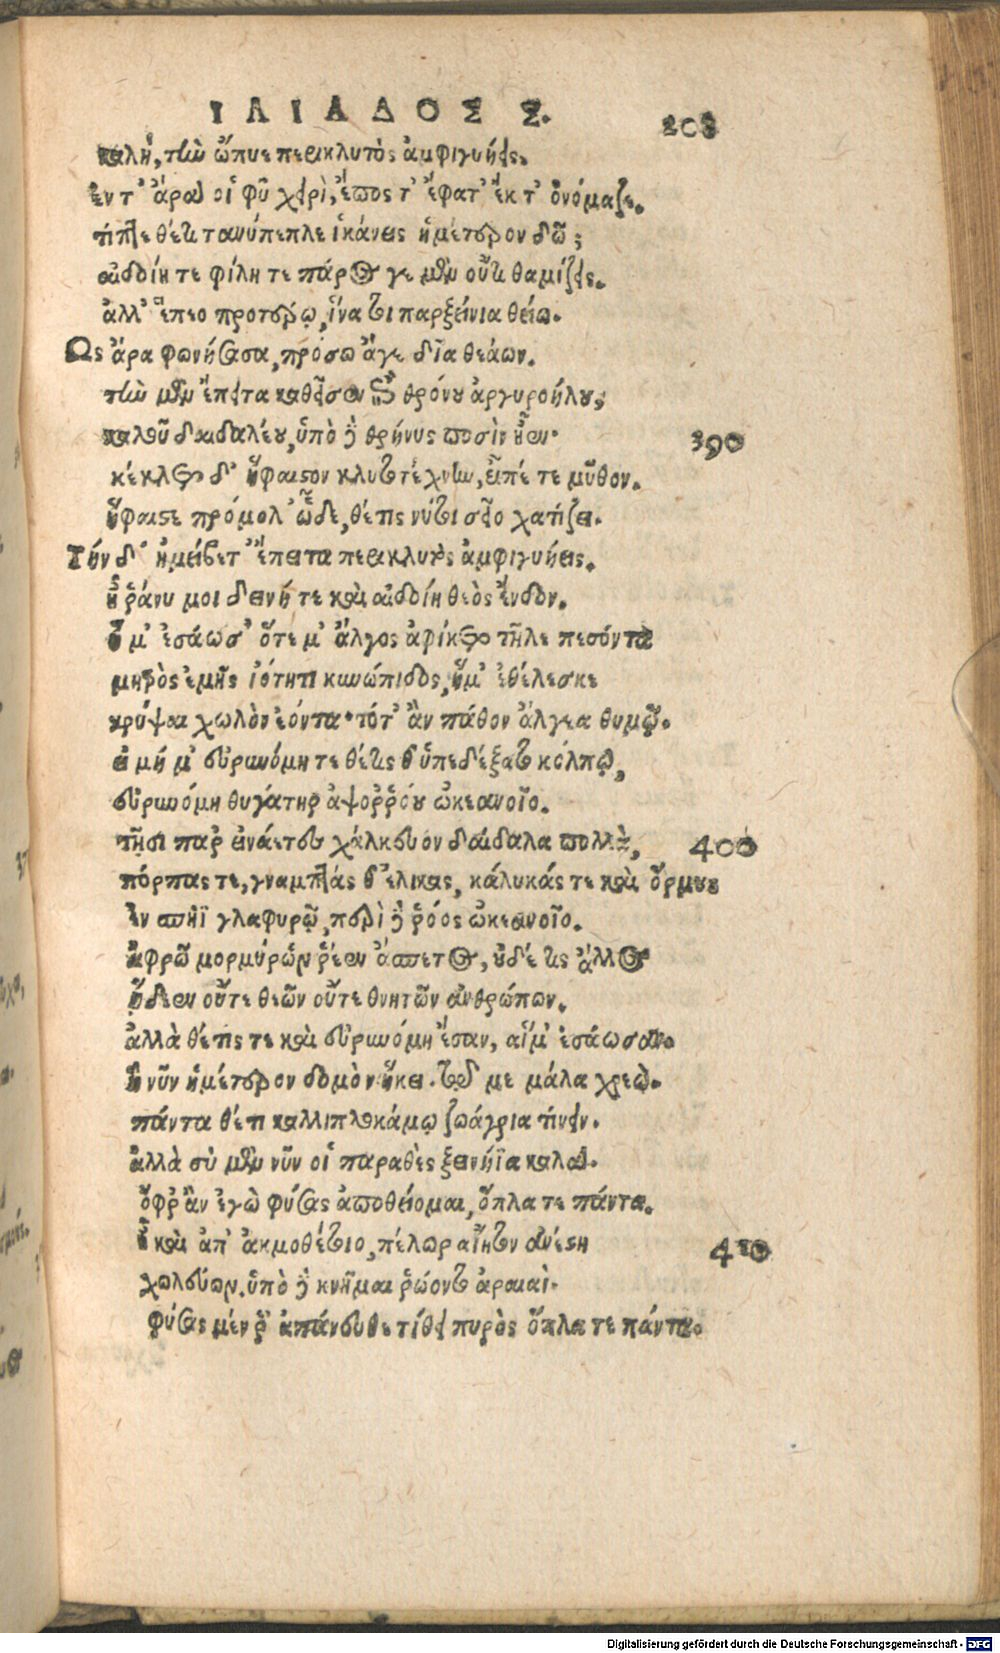 ΙΛΙΑΔΟΣ Σ. 208
καλὴ, τὴν ὤπυιε περικλυτὸς ἀμφιγυήεις.
Ἐν τ' ἄρα οἱ φῦ χειρὶ, ἔπος τ' ἔφατ' ἔκ τ' ὀνόμαζε.
τίπτε θέτι τανύπεπλε ἱκάνεις ἡμέτερον δῶ;
αἰδοίη τε φίλη τε πάρος γε μὲν οὔτι θαμίζεις.
ἀλλ' ἕπεο προτέρω, ἵνα τοι παρξείνια θείω.
Ὣς ἄρα φωνήσασα, πρόσω ἄγε δῖα θεάων.
τὴν μὲν ἔπειτα καθεῖσεν ἐπὶ θρόνου ἀργυροήλου,
καλοῦ δαιδαλέου, ὑπὸ δὲ θρῆνυς ποσὶν ἦεν· 390
κέκλετο δ' ἥφαιστον κλυτοτέχνην, εἶπέ τε μῦθον.
ἥφαιστε πρόμολ' ὧδε, θέτις νύ τοι σεῖο χατίζει.
Τήν δ' ἠμείβετ' ἔπειτα περικλυτὸς ἀμφιγυήεις.
ἦ ῥάνυ μοι δεινή τε καὶ αἰδοίη θεὸς ἔνδον.
ἥ μ' ἐσάωσ' ὅτε μ' ἄλγος ἀφίκετο τῆλε πεσόντα
μητρὸς ἐμῆς ἰότητι κυνώπιδος, ἥμ' ἐθέλεσκε
κρύψαι χωλὸν ἐόντα· τότ' ἂν πάθον ἄλγεα θυμῷ.
εἰ μή μ' εὐρυνόμη τε θέτις θ' ὑπεδέξατο κόλπῳ,
εὐρυνόμη θυγάτηρ ἀψοῤῥόου ὠκεανοῖο.
τῇσι παρ' εἰνάετες χάλκευον δαίδαλα πολλὰ, 400
πόρπας τε, γναμπτάς θ' ἕλικας, κάλυκάς τε καὶ ὅρμους
Ἐν σπῆϊ γλαφυρῷ, περὶ δὲ ῥόος ὠκεανοῖο.
ἀφρῷ μορμύρων ῥέεν ἄσπετος, οὐδέ τις ἄλλος
ᾔδεεν οὔτε θεῶν οὔτε θνητῶν ἀνθρώπων.
ἀλλὰ θέτις τε καὶ εὐρυνόμη ἔσαν, αἵμ' ἐσάωσαν.
ἣ νῦν ἡμέτερον δόμον ἥκει. τῷ με μάλα χρεὼ.
πάντα θέτι καλλιπλοκάμῳ ζωάγρια τίνειν.
ἀλλὰ σὺ μὲν νῦν οἱ παράθες ξεινήϊα καλά.
ὄφρ' ἂν ἐγὼ φύσας ἀποθείομαι, ὅπλα τε πάντα.
Ἦ καὶ ἀπ' ἀκμοθέτοιο, πέλωρ αἴητον ἀνέστη 410
χωλεύων. ὑπὸ δὲ κνῆμαι ῥώοντο ἀραιαὶ.
φύσας μέν ῥ' ἀπάνευθε τίθει πυρὸς ὅπλα τε πάντα.
Digitalisierung gefördert durch die Deutsche Forschungsgemeinschaft - DFG